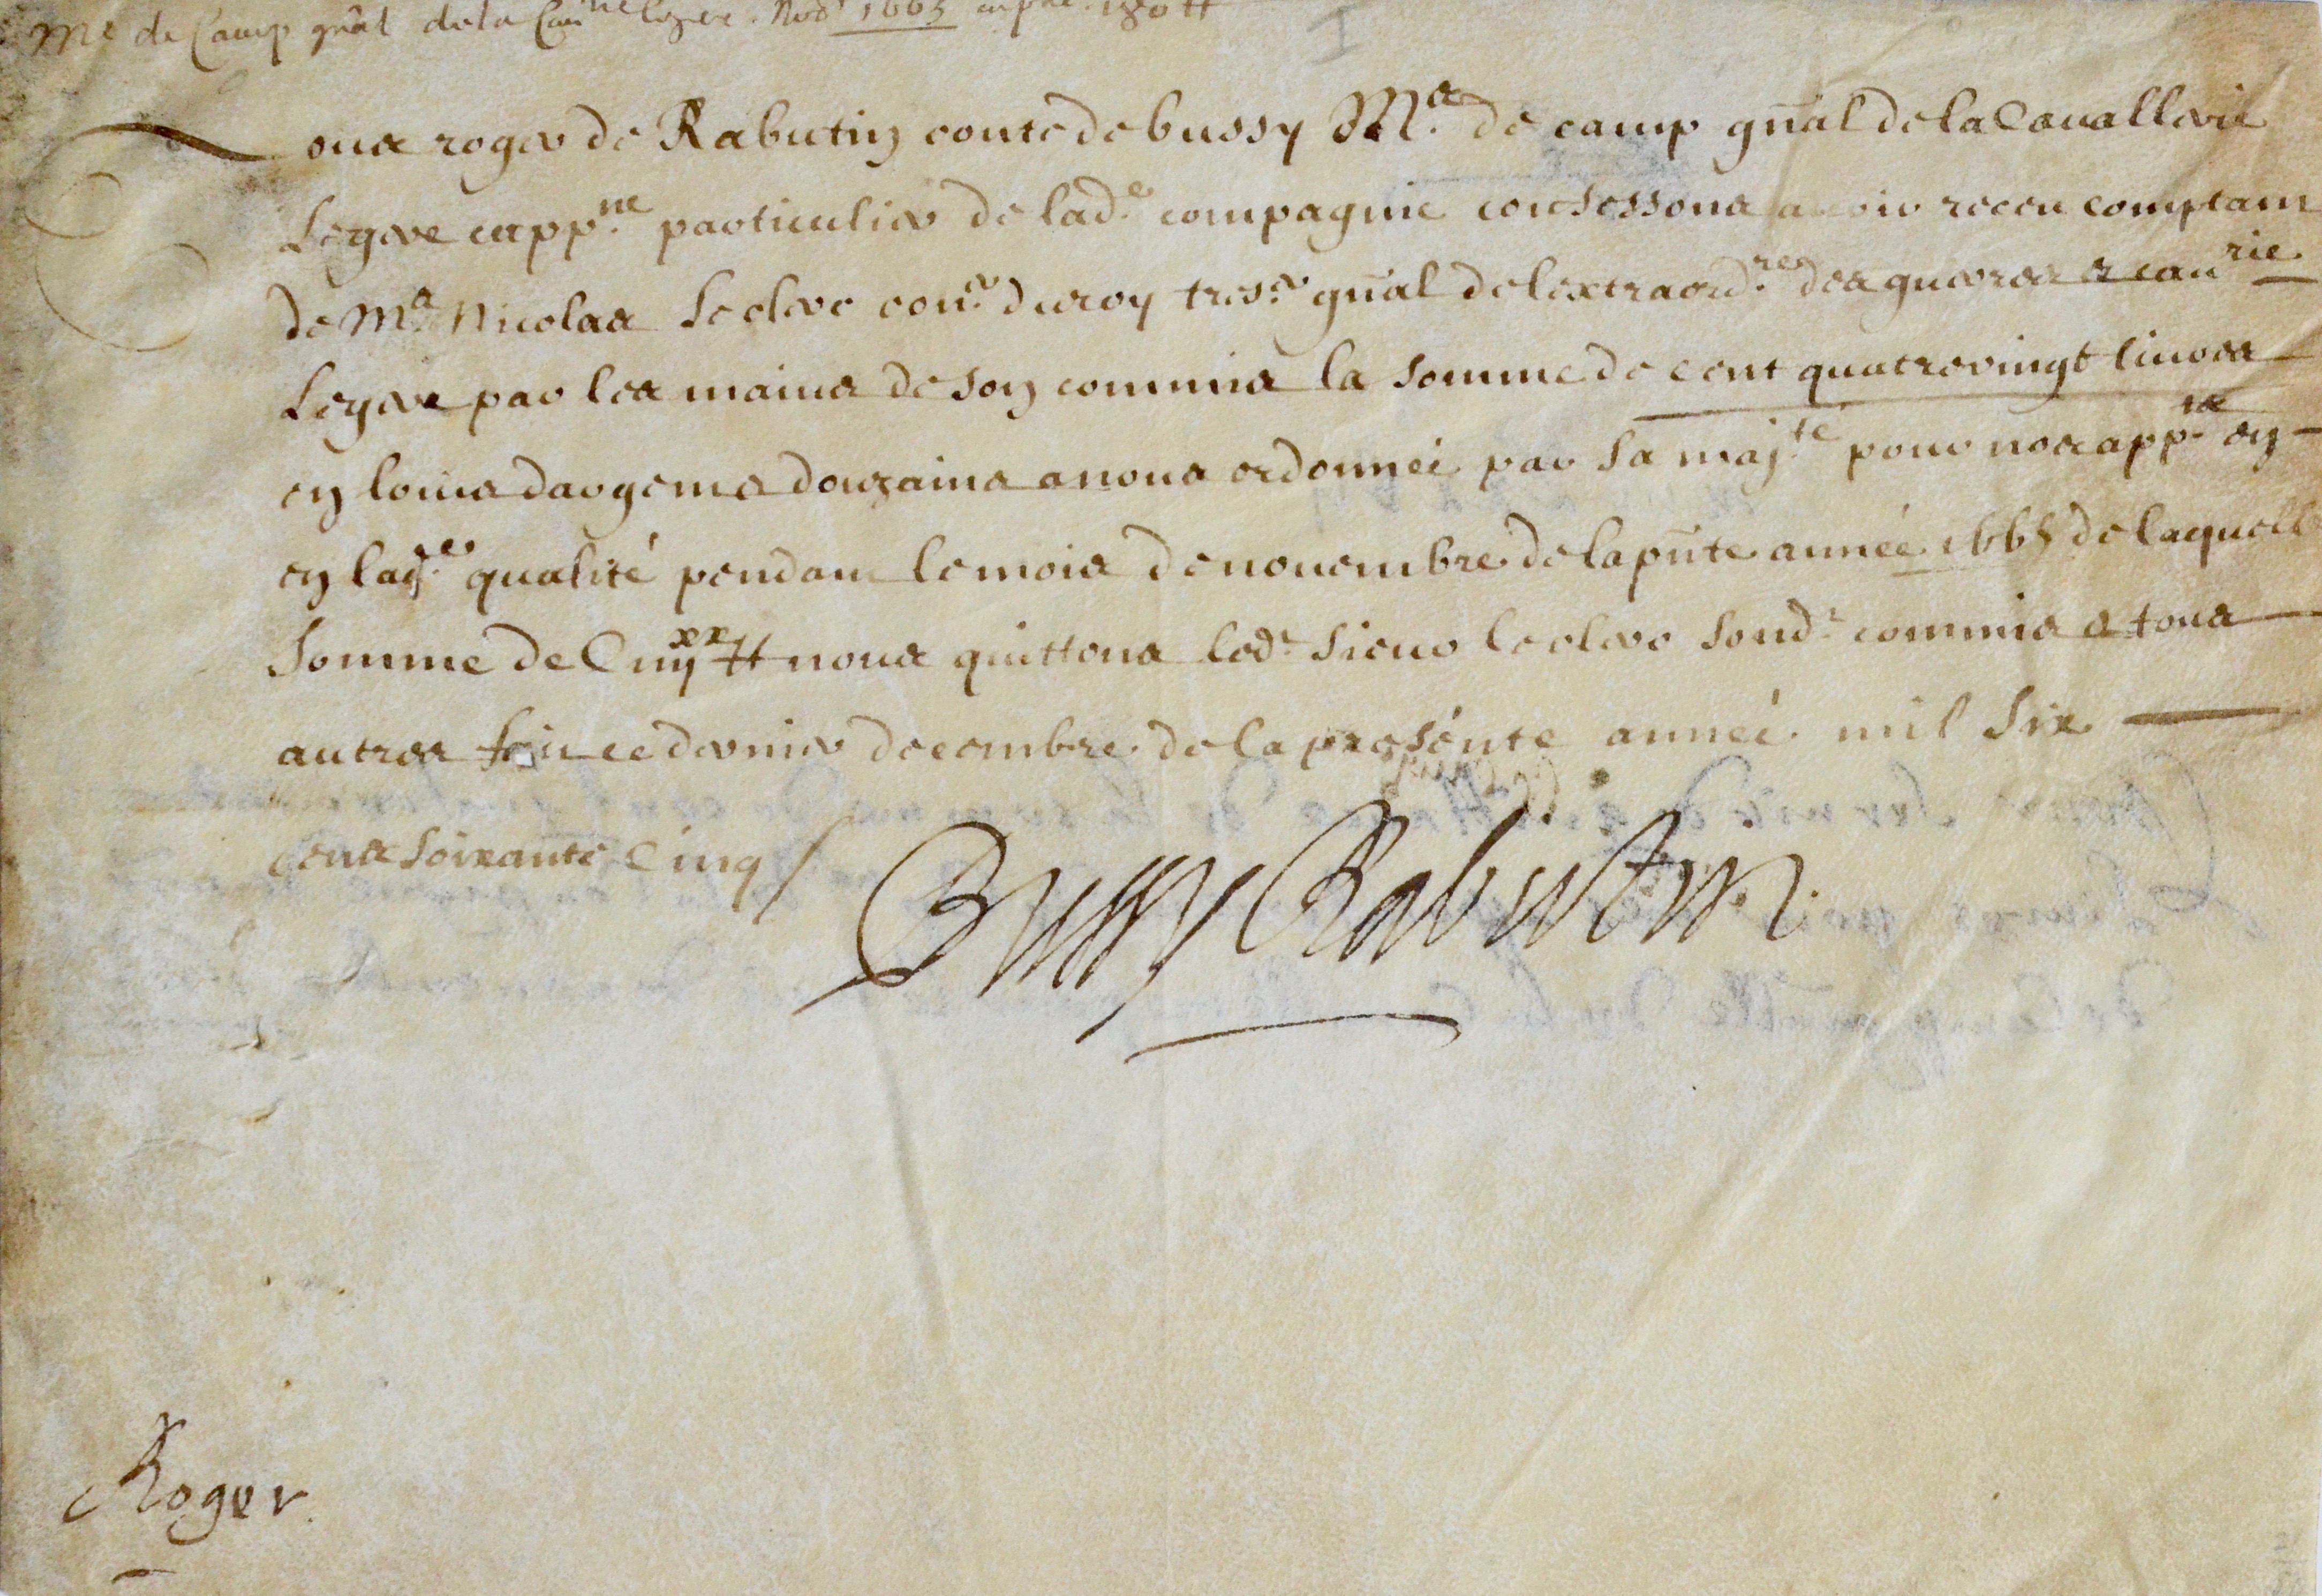 Me de Camp gnãl de la Cau.ne legere. Nov.r 1665 180 tt
Nous roger de Rabutin conte de bussy Me. de camp gñal de la Cavallerie
Legere capp.ne particulier de lad.e compagnie confessons avoir receu comptam
de Me. Nicolas Leclerc con.er du roy tres.er gñal de lextraord.re des guerres et cau.rie
Legere par les mains de son commis la somme de cent quatrevingt livres
en louis dargems douzains a nous ordonneé par sa maj.té pour nos app.ns en
en lad.e qualité pendam le mois de novembre de la pñte année 1665 de laquelle
somme de C iiij xx tt nous quittons led.t sieur leclerc sond.t commis et tous
autres fait ce dernier decembre de la presénte anneé mil six
cens soixante cinq /
Bussy Rabutin
Roger